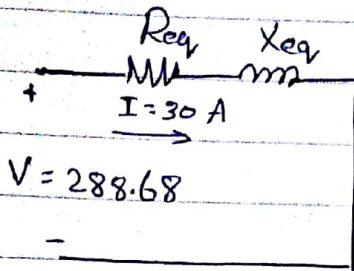 Req Xeq
+
I = 30 A
V = 288.68
-